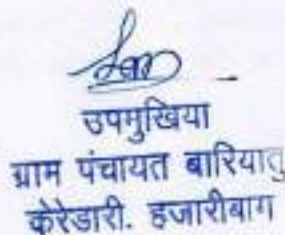 उपमुखिया
ग्राम पंचायत बारियातु
केरेडारी. हजारीबाग